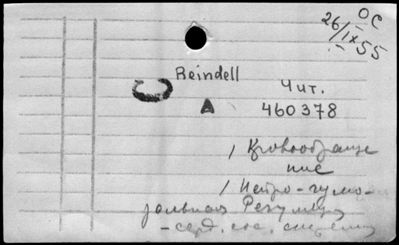 ОС
26/IX 55
Reindell
Чит.
460378
/ Кровообраще
ние
/ Нейро-гумо-
ральная Регуляц.
-серд. сос. системы